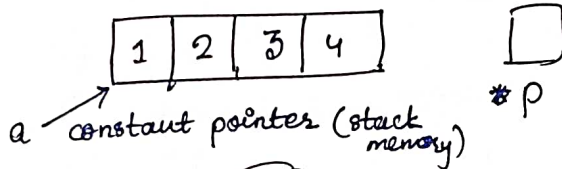 1 2 3 4
* p
a constant pointer (stack
memory)